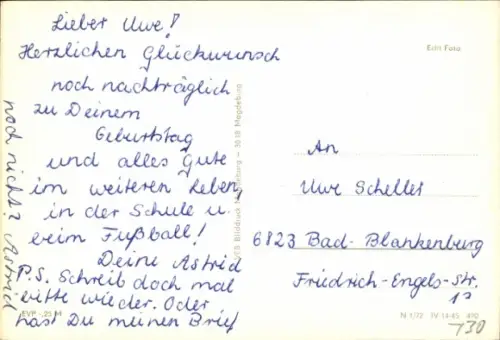 Lieber Uwe!
Herzlichen Glückwunsch
noch nachträglich
zu Deinem
Geburtstag
und alles Gute
im weiteren Leben,
in der Schule u.
beim Fußball!
Deine Astrid
P.S. Schreib doch mal
bitte wieder. Oder
hast Du meinen Brief
noch nicht? Astrid
EVP
Magdeburg
Echt Foto
An
Uwe Scheller
6823 Bad-Blankenburg
Friedrich-Engels-Str.
N 1/72 IV-14-45
130